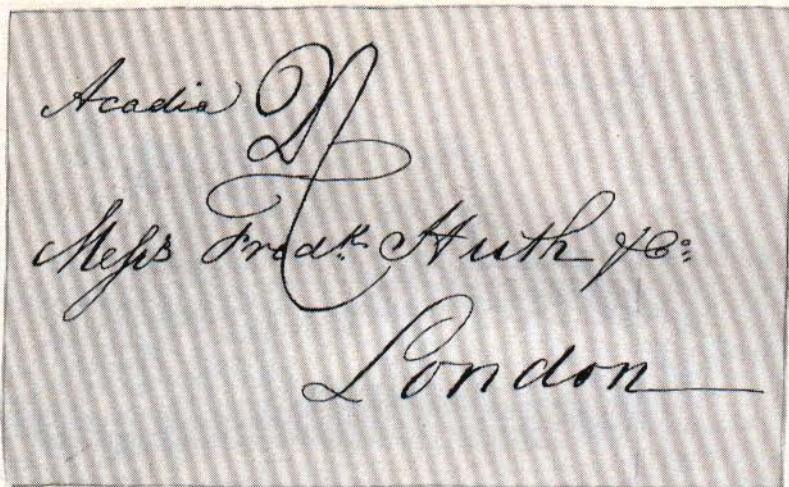 Acadia
Messrs Fredk. Huth & Co:
London